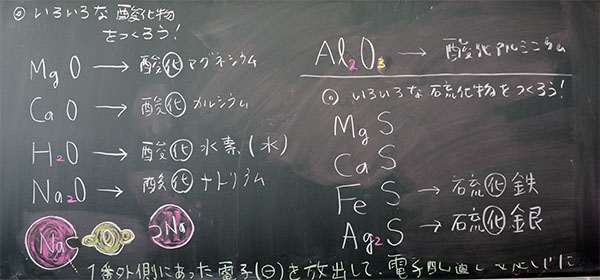 ◎いろいろな酸化物
をつくろう!
MgO → 酸化マグネシウム
CaO → 酸化カルシウム
H₂O → 酸化水素(水)
Na₂O → 酸化ナトリウム
Na O Na
1番外側にあった電子(⊖)を放出して、電子配
Al₂O₃ → 酸化アルミニウム
◎いろいろな硫化物をつくろう!
MgS
CaS
FeS → 硫化鉄
Ag₂S → 硫化銀